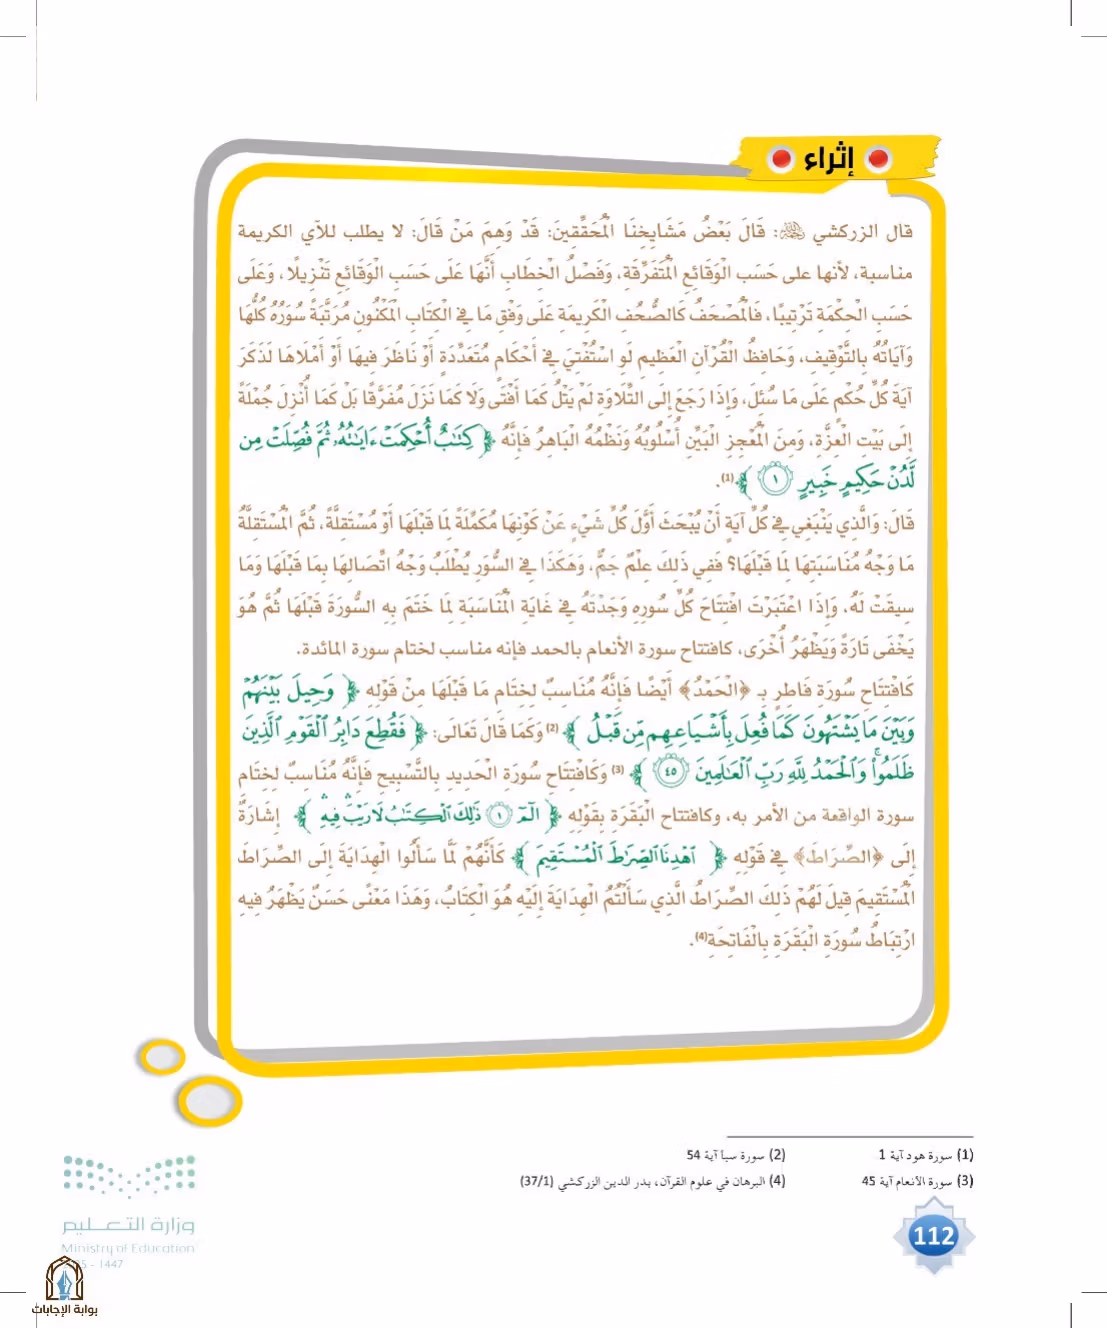 إثراء
قال الزركشي ﵀: قَالَ بَعْضُ مَشَايِخِنَا الْمُحَقِّقِينَ: قَدْ وَهِمَ مَنْ قَالَ: لا يطلب للآي الكريمة
مناسبة، لأنها على حَسَب الْوَقَائِعِ الْمُتَفَرِّقَةِ، وَفَصْلُ الْخِطَابِ أَنَّهَا عَلَى حَسَبِ الْوَقَائِعِ تَنْزِيلًا، وَعَلَى
حَسَبِ الْحِكْمَةِ تَرْتِيبًا، فَالْمُصْحَفُ كَالصُّحُفِ الْكَرِيمَةِ عَلَى وَفْقِ مَا فِي الْكِتَابِ الْمَكْنُونِ مُرَتَّبَةً سُوَرُهُ كُلُّهَا
وَآيَاتُهُ بِالتَّوْقِيفِ، وَحَافِظُ الْقُرْآنِ الْعَظِيمِ لَوِ اسْتُفْتِيَ فِي أَحْكَامٍ مُتَعَدِّدَةٍ أَوْ نَاظَرَ فِيهَا أَوْ أَمْلَاهَا لَذَكَرَ
آيَةَ كُلِّ حُكْمٍ عَلَى مَا سُئِلَ، وَإِذَا رَجَعَ إِلَى التِّلَاوَةِ لَمْ يَتْلُ كَمَا أَفْتَى وَلَا كَمَا نَزَلَ مُفَرَّقًا بَلْ كَمَا أُنْزِلَ جُمْلَةً
إِلَى بَيْتِ الْعِزَّةِ، وَمِنَ الْمُعْجِزِ الْبَيِّنِ أُسْلُوبُهُ وَنَظْمُهُ الْبَاهِرُ فَإِنَّهُ ﴿ كِتَٰبٌ أُحْكِمَتْ ءَايَٰتُهُۥ ثُمَّ فُصِّلَتْ مِن
لَّدُنْ حَكِيمٍ خَبِيرٍ ۝١ ﴾(1).
قَالَ: وَالَّذِي يَنْبَغِي فِي كُلِّ آيَةٍ أَنْ يُبْحَثَ أَوَّلَ كُلِّ شَيْءٍ عَنْ كَوْنِهَا مُكَمِّلَةً لِمَا قَبْلَهَا أَوْ مُسْتَقِلَّةً، ثُمَّ الْمُسْتَقِلَّةُ
مَا وَجْهُ مُنَاسَبَتِهَا لِمَا قَبْلَهَا؟ فَفِي ذَلِكَ عِلْمٌ جَمٌّ، وَهَكَذَا فِي السُّوَرِ يُطْلَبُ وَجْهُ اتِّصَالِهَا بِمَا قَبْلَهَا وَمَا
سِيقَتْ لَهُ، وَإِذَا اعْتَبَرْتَ افْتِتَاحَ كُلِّ سُورِهِ وَجَدْتَهُ فِي غَايَةِ الْمُنَاسَبَةِ لِمَا خَتَمَ بِهِ السُّورَةَ قَبْلَهَا ثُمَّ هُوَ
يَخْفَى تَارَةً وَيَظْهَرُ أُخْرَى، كافتتاح سورة الأنعام بالحمد فإنه مناسب لختام سورة المائدة.
كَافْتِتَاحِ سُورَةِ فَاطِرٍ بِـ ﴿الْحَمْدُ﴾ أَيْضًا فَإِنَّهُ مُنَاسِبٌ لِخِتَامِ مَا قَبْلَهَا مِنْ قَوْلِهِ ﴿ وَحِيلَ بَيْنَهُمْ
وَبَيْنَ مَا يَشْتَهُونَ كَمَا فُعِلَ بِأَشْيَاعِهِم مِّن قَبْلُ ﴾(2) وَكَمَا قَالَ تَعَالَى: ﴿ فَقُطِعَ دَابِرُ ٱلْقَوْمِ ٱلَّذِينَ
ظَلَمُوا۟ وَٱلْحَمْدُ لِلَّهِ رَبِّ ٱلْعَٰلَمِينَ ۝٤٥ ﴾(3) وَكَافْتِتَاحِ سُورَةِ الْحَدِيدِ بِالتَّسْبِيحِ فَإِنَّهُ مُنَاسِبٌ لِخِتَامِ
سورة الواقعة من الأمر به، وكافتتاح الْبَقَرَةِ بِقَوْلِهِ ﴿ الٓمٓ ۝١ ذَٰلِكَ ٱلْكِتَٰبُ لَا رَيْبَ فِيهِ ﴾ إِشَارَةٌ
إِلَى ﴿الصِّرَاطَ﴾ فِي قَوْلِهِ ﴿ ٱهْدِنَا ٱلصِّرَٰطَ ٱلْمُسْتَقِيمَ ﴾ كَأَنَّهُمْ لَمَّا سَأَلُوا الْهِدَايَةَ إِلَى الصِّرَاطِ
الْمُسْتَقِيمَ قِيلَ لَهُمْ ذَلِكَ الصِّرَاطُ الَّذِي سَأَلْتُمُ الْهِدَايَةَ إِلَيْهِ هُوَ الْكِتَابُ، وَهَذَا مَعْنًى حَسَنٌ يَظْهَرُ فِيهِ
ارْتِبَاطُ سُورَةِ الْبَقَرَةِ بِالْفَاتِحَةِ(4).
(1) سورة هود آية 1
(2) سورة سبأ آية 54
(3) سورة الأنعام آية 45
(4) البرهان في علوم القرآن، بدر الدين الزركشي (37/1)
112
وزارة التعليم
Ministry of Education
5 - 1447
بوابة الإجابات